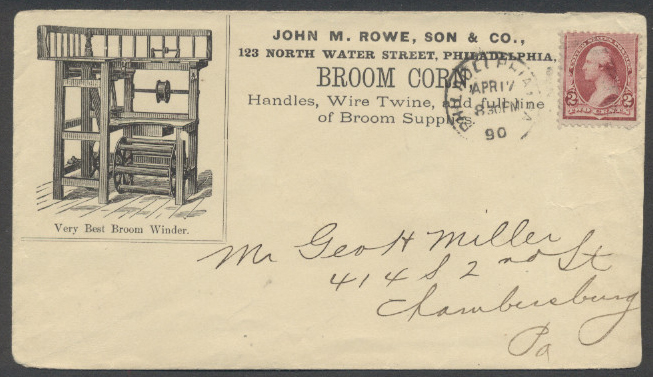 JOHN M. ROWE, SON & CO.,
123 NORTH WATER STREET, PHILADELPHIA,
BROOM CORN
Handles, Wire Twine, and full line
of Broom Supplies.
Very Best Broom Winder.
PHILADELPHIA
APR 17
8 30 PM
90
2 2
TWO CENTS
Mr Geo H Miller
414 S 2nd St
Chambersburg
Pa